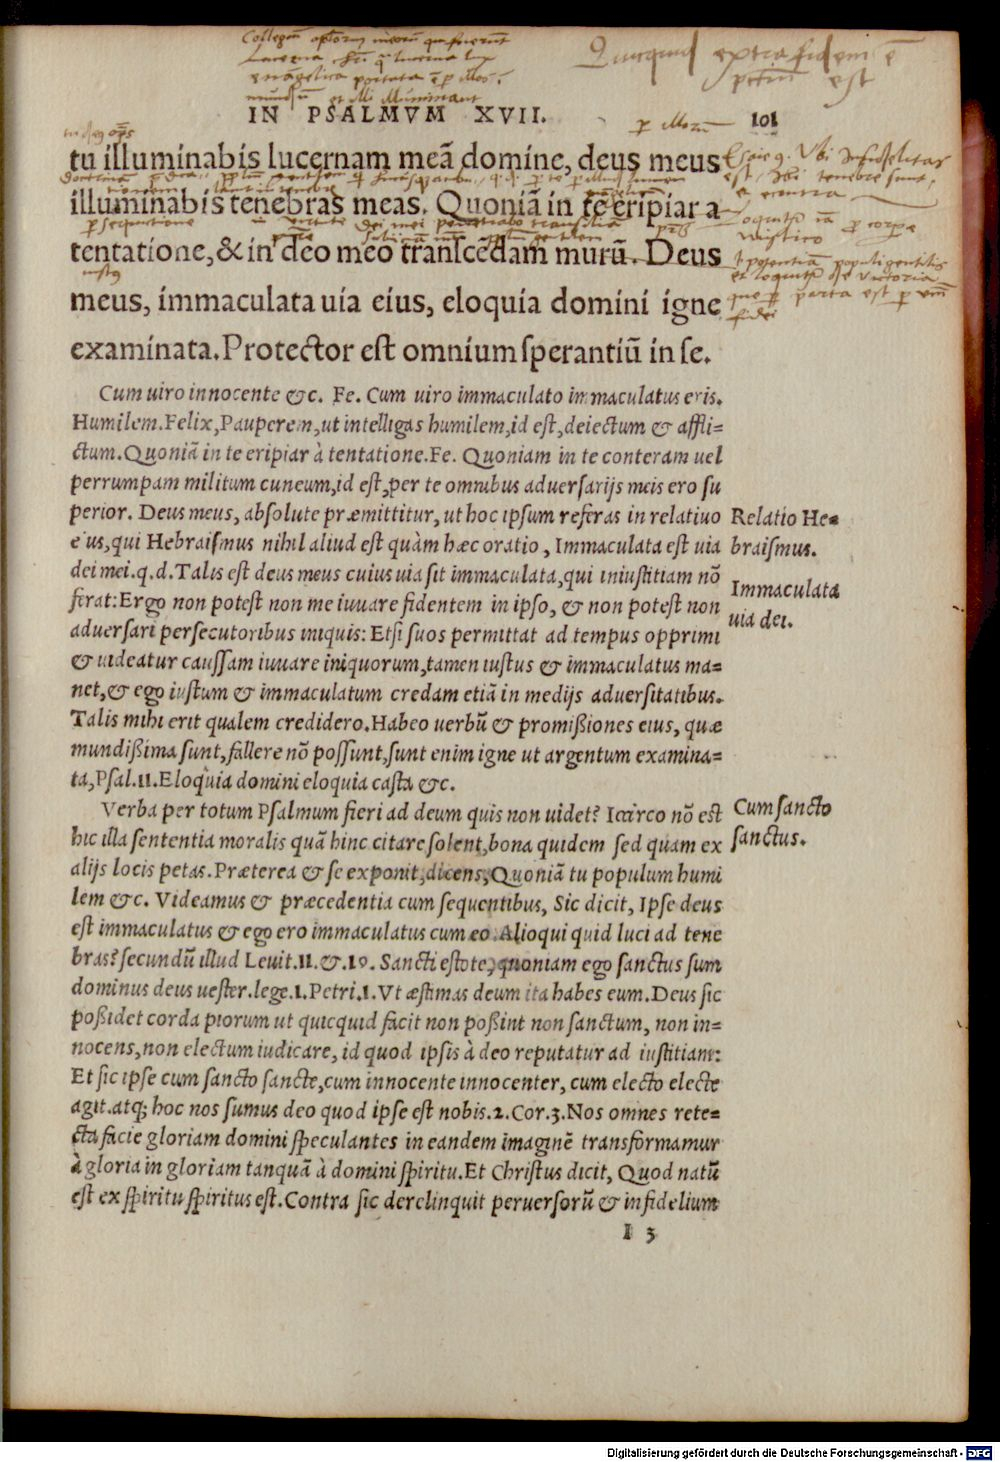 Quicquid extra fidem ē
pctm̄ est
IN PSALMVM XVII.
101
tu illuminabis lucernam meā domine, deus meus
illuminabis tenebras meas. Quoniā in te eripiar a
tentatione, & in deo meo transcedam murū. Deus
meus, immaculata uia eius, eloquia domini igne
examinata. Protector est omnium sperantiū in se.
Cum uiro innocente &c. Fe. Cum uiro immaculato immaculatus eris.
Humilem. Felix, Pauperem, ut intelligas humilem, id est, deiectum & affli-
ctum. Quoniā in te eripiar à tentatione. Fe. Quoniam in te conteram uel
perrumpam militum cuneum, id est, per te omnibus aduersarijs meis ero su
perior. Deus meus, absolute præmittitur, ut hoc ipsum referas in relatiuo
eius, qui Hebraismus nihil aliud est quàm hæc oratio, Immaculata est uia
dei mei. q.d. Talis est deus meus cuius uia sit immaculata, qui iniustitiam nō
ferat: Ergo non potest non me iuuare fidentem in ipso, & non potest non
aduersari persecutoribus iniquis: Etsi suos permittat ad tempus opprimi
& uideatur caussam iuuare iniquorum, tamen iustus & immaculatus ma-
net, & ego iustum & immaculatum credam etiā in medijs aduersitatibus.
Talis mihi erit qualem credidero. Habeo uerbū & promißiones eius, quæ
mundißima sunt, fallere nō possunt, sunt enim igne ut argentum examina-
ta, Psal.11. Eloquia domini eloquia casta &c.
Relatio He-
braismus.
Immaculata
uia dei.
Verba per totum Psalmum fieri ad deum quis non uidet? Icarco nō est
hic illa sententia moralis quā hinc citare solent, bona quidem sed quam ex
alijs locis petas. Præterea & se exponit, dicens, Quoniā tu populum humi
lem &c. Videamus & præcedentia cum sequentibus, Sic dicit, Ipse deus
est immaculatus & ego ero immaculatus cum eo. Alioqui quid luci ad tene
bras? secundū illud Leuit.11. &.19. Sancti estote, quoniam ego sanctus sum
dominus deus uester. lege.1. Petri.1. Vt æstimas deum ita habes eum. Deus sic
poßidet corda piorum ut quicquid facit non poßint non sanctum, non in-
nocens, non electum iudicare, id quod ipsis à deo reputatur ad iustitiam:
Et sic ipse cum sancto sancte, cum innocente innocenter, cum electo electe
agit. atq; hoc nos sumus deo quod ipse est nobis.2. Cor.3. Nos omnes rete-
cta facie gloriam domini speculantes in eandem imaginē transformamur
à gloria in gloriam tanquā à domini spiritu. Et Christus dicit, Quod natū
est ex spiritu spiritus est. Contra sic derelinquit peruersorū & infidelium
Cum sancto
sanctus.
I 3
Digitalisierung gefördert durch die Deutsche Forschungsgemeinschaft - DFG